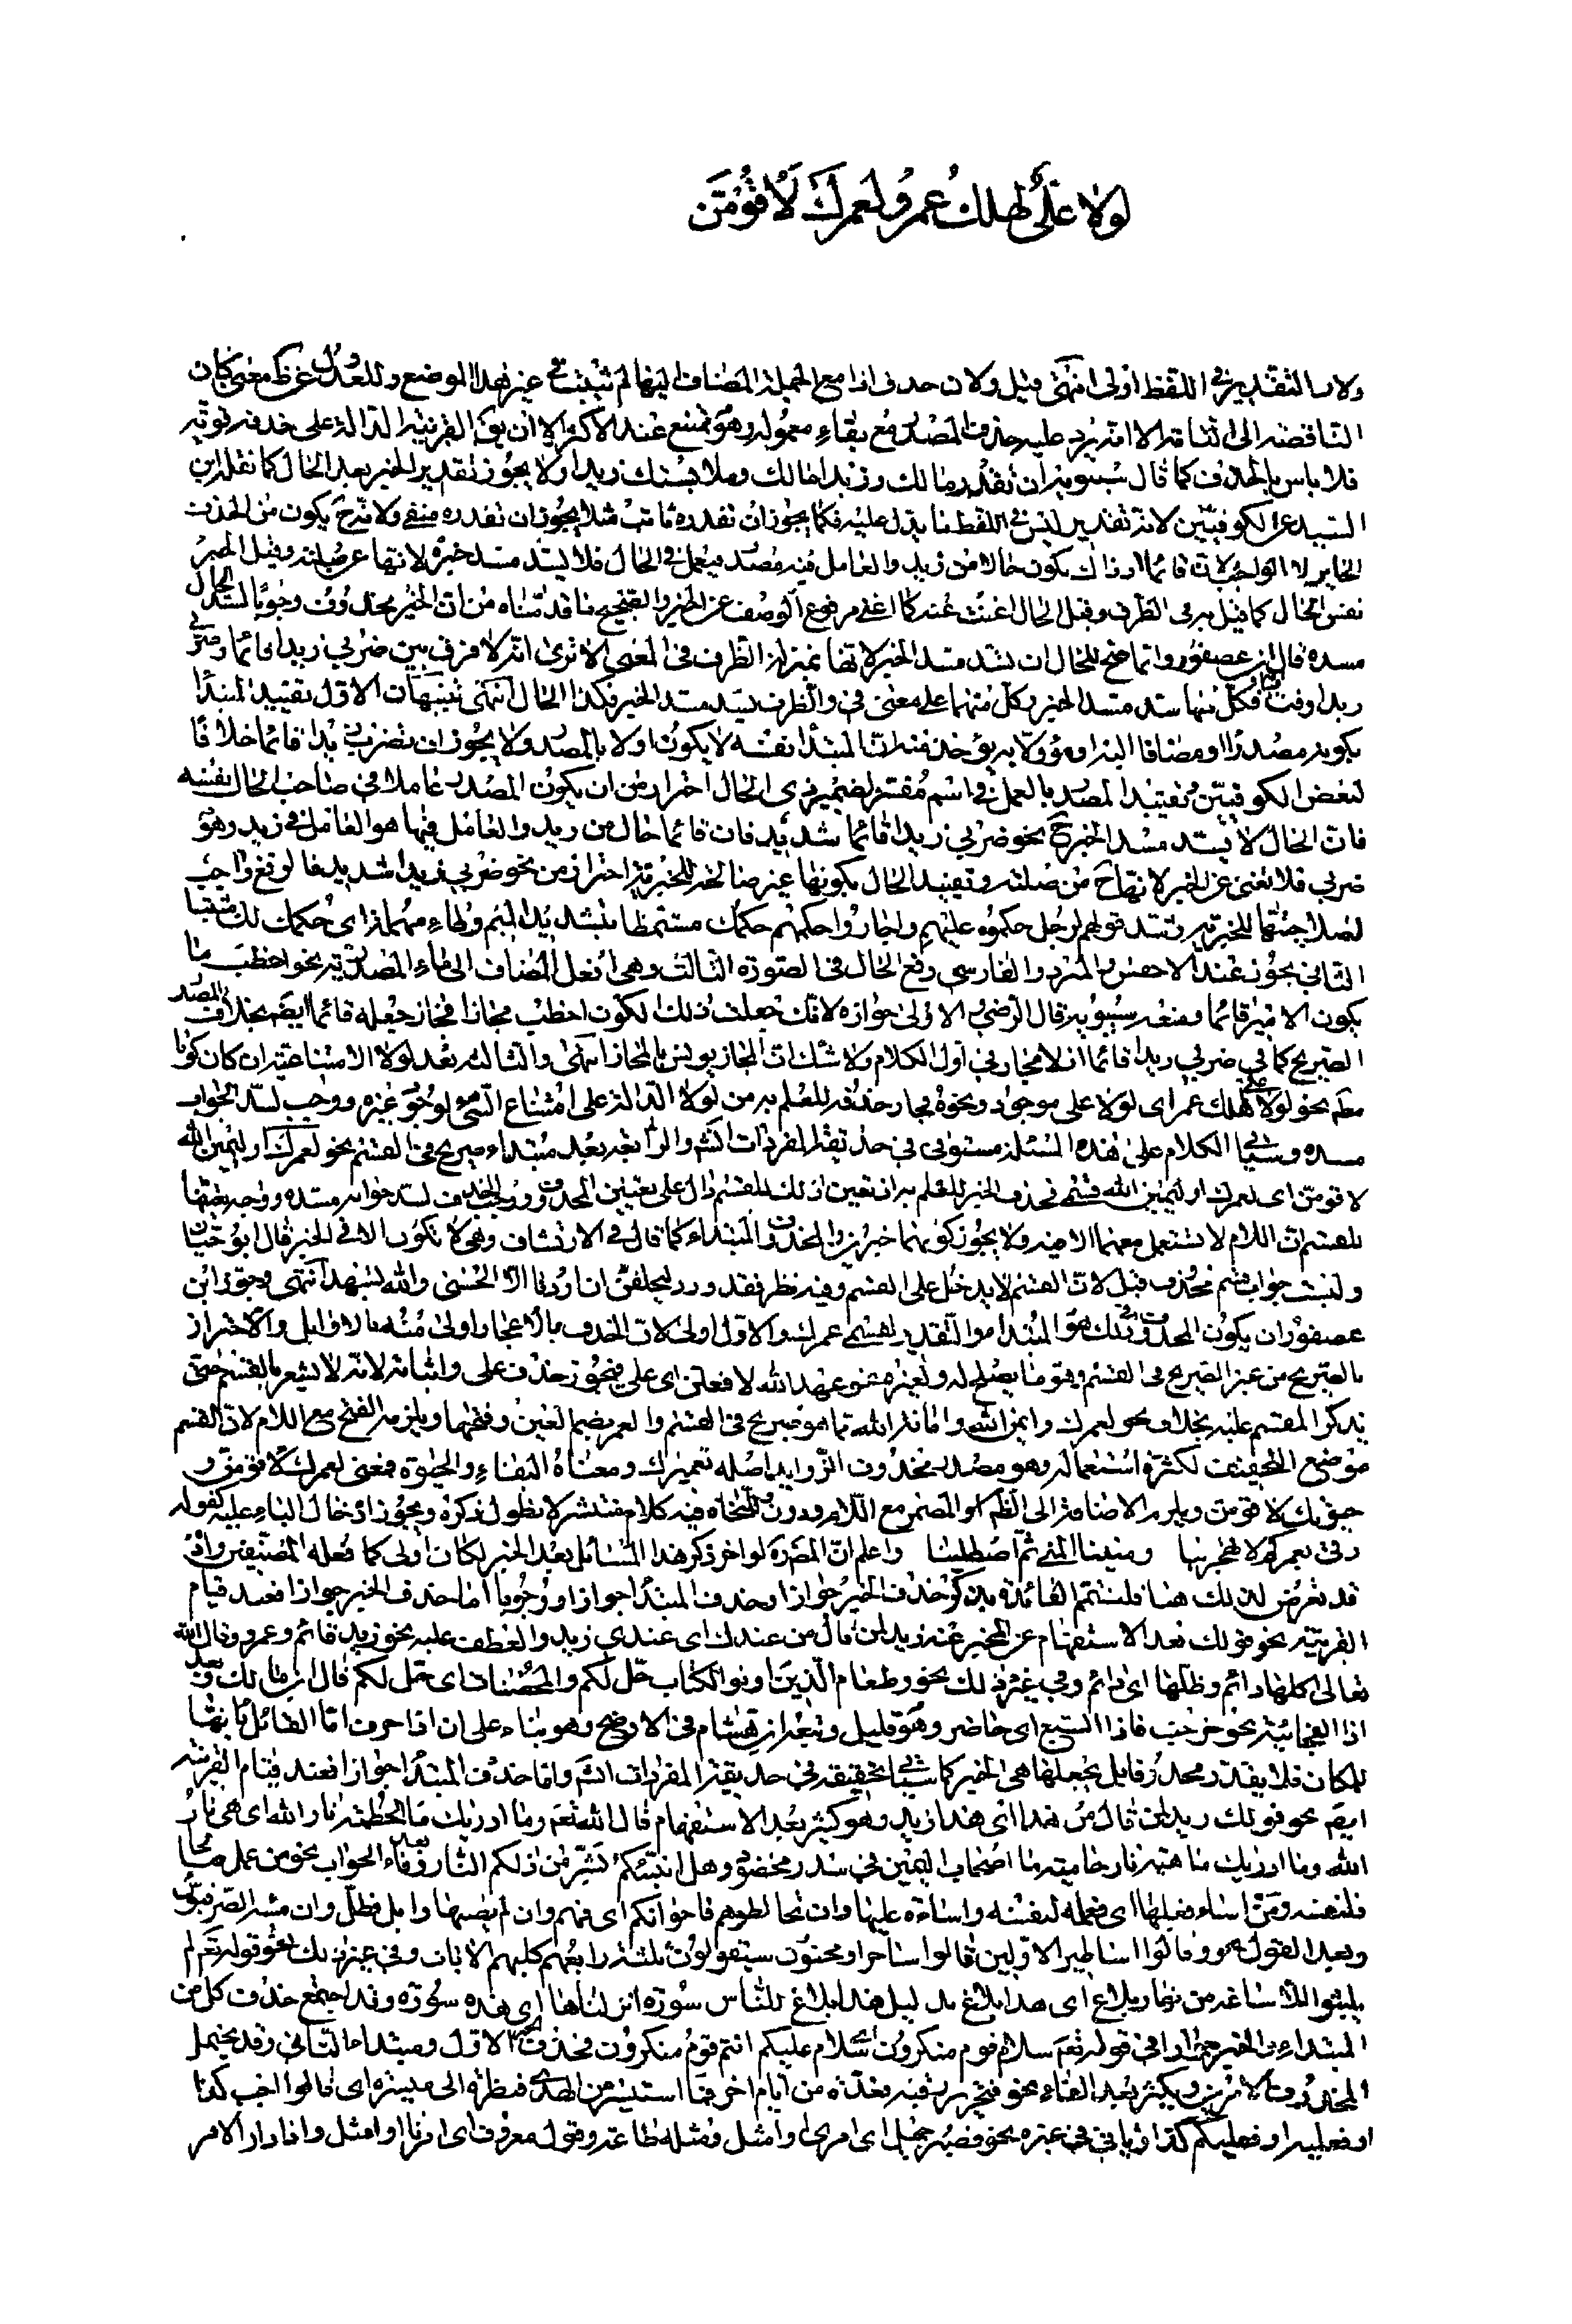 لولا علىٌّ لهلك عمر ولعمرك لأقومَنّ
ولان التقدير في اللفظ اولى انتهى قيل ولان حذف اذا مع الجملة المضاف اليها لم يثبت في غير هذا الموضع وللعدول عن ظ معنى كان
الناقصة الى التامة الا انه يرد عليه حذف المصدر مع بقاء معموله وهو ممتنع عند الاكثر الا ان يق القرينة الدالة على حذفه قوية
فلا باس بالحذف كما قال سيبويه ان تقدير مالك وزيدا مالك وملابستك زيدا ولا يجوز تقدير الخبر بعد الحال كما نقله ابن
السيد عن الكوفيين لانه تقدير ليس في اللفظ ما يدل عليه فكما يجوز ان تقدره ثابت مثلا يجوز ان تقدره منفي ولانه ح يكون من الحذف
الجايز لا الواجب لان قائما اذ ذاك يكون حالا من زيد والعامل فيه مصدر فيعمل في الحال فلا يسد مسد خبره لانها عن صلته وقيل الخبر
نفس الحال كما قيل به في الظرف وقيل الحال اغنت عنه كما اغنى مرفوع الوصف عن الخبر والصحيح ما قدمناه من ان الخبر محذوف وجوبا لسد الحال
مسده قال ابن عصفور وانما صح للحال ان تسد مسد الخبر لانها بمنزلة الظرف في المعنى الا ترى انه لا فرق بين ضربي زيدا قائما وضربي
زيدا وقت قيامه فكل منها سد مسد الخبر وكل منهما على معنى في والظرف يسد مسد الخبر فكذا الحال انتهى تنبيهات الاول تقييد المبتدا
بكونه مصدرا او مضافا اليه او مؤولا به يؤخذ منه ان المبتدا نفسه لا يكون اولا بالمصدر ولا يجوز ان تضرب زيدا قائما خلافا
لبعض الكوفيين وتقييد المصدر بالعمل في اسم مفسر لضمير ذى الحال احتراز من ان يكون المصدر عاملا في صاحب الحال نفسه
فان الحال لا يسد مسد الخبر ح نحو ضربي زيدا قائما شديد فان قائما حال من زيد والعامل فيها هو العامل في زيد وهو
ضربي فلا تغنى عن الخبر لانها ح من صلته وتقييد الحال بكونها غير صالحة للخبرية احتراز من نحو ضربي زيدا شديد فالرفع واجب
لصلاحيتها للخبرية وشذ قولهم لرجل حكموه عليهم واجازوا حكمهم حكمك مسمطا بتشديد الميم وطاء مهملة اى حكمك لك مثبتا
الثاني يجوز عند الاخفش والمبرد والفارسي رفع الحال في الصورة الثالثة وهي افعل المضاف الى ماء المصدرية نحو اخطب ما
يكون الامير قائما ومنعه سيبويه قال الرضي الاولى جوازه لانك جعلت ذلك الكون اخطب مجازا فجاز جعله قائما ايضم بخلاف المصدر
الصريح كما في ضربي زيدا قائما اذ لا مجاز في اول الكلام ولا شك ان المجاز يونس بالمجاز انتهى والثالثة بعد لولا الامتناعية ان كان كونا
مطم نحو لولا على لهلك عمر اى لولا على موجود ونحوه فجاز حذفه للعلم به من لولا الدالة على امتناع الشىء لوجود غيره ووجب لسد الجواب
مسده وسيأتي الكلام على هذه المسئلة مستوفى في حديقة المفردات انش والرابعة بعد مبتداء صريح في القسم نحو لعمرك وايمن الله
لاقومن اى لعمرك او ايمن الله قسمي فحذف الخبر للعلم به اذ تعين ذلك للقسم دال على تعيين المحذوف ووجب الحذف لسد جوابه مسده ووجه تعينها
للقسم ان اللام لا تستعمل معهما الا فيه ولا يجوز كونهما خبرين والمحذوف المبتداء كما قال في الارتشاف وهي لا تكون الا في الخبر قال ابو حيان
وليست جواب قسم محذوف قيل لان القسم لا يدخل على القسم وفيه نظر فقد ورد ليحلفن ان اردنا الا الحسنى والله يشهد انتهى وجوز ابن
عصفور ان يكون المحذوف في ذلك هو المبتدا والتقدير لقسمي عمرك والاول اولى لان الحذف بالاعجاز اولى منه بالاوايل والاحتراز
بالصريح من غير الصريح في القسم وهو ما يصلح له ولغيره نحو عهد الله لافعلن اى على فيجوز حذف على واثباته لانه لا يشعر بالقسم حتى
يذكر المقسم عليه بخلاف نحو لعمرك وايمن الله وامانة الله مما هو صريح في القسم والعمر بضم العين وفتحها ويلزمه الفتح مع اللام لان القسم
موضع التخفيف لكثرة استعماله وهو مصدر محذوف الزوايد اصله تعميرك ومعناه البقاء والحيوة فمعنى لعمرك لاقومن و
حيوتك لاقومن ويلزمه الاضافة الى الظم او المضمر مع اللام ودون وللنحاة فيه كلام منتشر لا نطول بذكره ويجوز ادخال الباء عليه كقوله
رقى بعمركم لا تهجرينا ومنينا المنى ثم امطلينا واعلم ان المصره لو اخر ذكر هذا المسائل بعد الخبر لكان اولى كما فعله المصنفين واذ
قد تعرض لذلك هنا فلنتم الفائدة بذكر حذف الخبر جوازا وحذف المبتدأ جوازا ووجوبا اما حذف الخبر جوازا فعند قيام
القرينة نحو قولك بعد الاستفهام عن المخبر عنه زيد لمن قال من عندك اى عندي زيد والعطف عليه نحو زيد قائم وعمرو وقال الله
تعالى اكلها دائم وظلها اى دائم وفي غير ذلك نحو وطعام الذين اوتوا الكتاب حل لكم والمحصنات اى حل لكم قال ابن مالك وبعد
اذا الفجائية نحو خرجت فاذا السبع اى حاضر وهو قليل وتبعه ابن هشام في الاوضح وهو بناء على ان اذا حرف اما القائل بانها
للمكان فلا يقدر محذوفا بل يجعلها هي الخبر كما سيأتي تحقيقه في حديقة المفردات انش واما حذف المبتدأ جوازا فعند قيام القرينة
ايضم نحو قولك زيد لمن قال من هذا اى هذا زيد وهو كثير بعد الاستفهام قال الله تعم وما ادريك ما الحطمة نار الله اى هي نار
الله وما ادريك ما هيه نار حامية ما اصحاب اليمين في سدر مخضود وهل انبئكم بشر من ذلكم النار وبعد فاء الجواب نحو من عمل صالحا
فلنفسه ومن اساء فعليها اى فعمله لنفسه واساءته عليها وان تخالطوهم فاخوانكم اى فهم وان لم يصبها وابل فطل وان مسه الشر فيؤس
وبعد القول نحو وقالوا اساطير الاولين قالوا ساحر او مجنون سيقولون ثلثة رابعهم كلبهم الايات وفي غير ذلك نحو قوله تعم لم
يلبثوا الا ساعة من نهار بلاغ اى هذا بلاغ بدليل هذا بلاغ للناس سورة انزلناها اى هذه سورة وقد اجتمع حذف كل من
المبتداء والخبر جوازا في قوله تعم سلام قوم منكرون اى سلام عليكم انتم قوم منكرون فحذف خبر الاول ومبتداء الثاني وقد يحتمل
المحذوف الامرين ويكثر بعد الفاء نحو فتحرير رقبة فعدة من ايام اخر فما استيسر من الهدى فنظرة الى ميسرة اى فالواجب كذا
او فعليه او فعليكم كذا ويأتي في غيره نحو فصبر جميل اى امرى او امثل ومثله طاعة وقول معروف اى امرنا او امثل واذا دار الامر